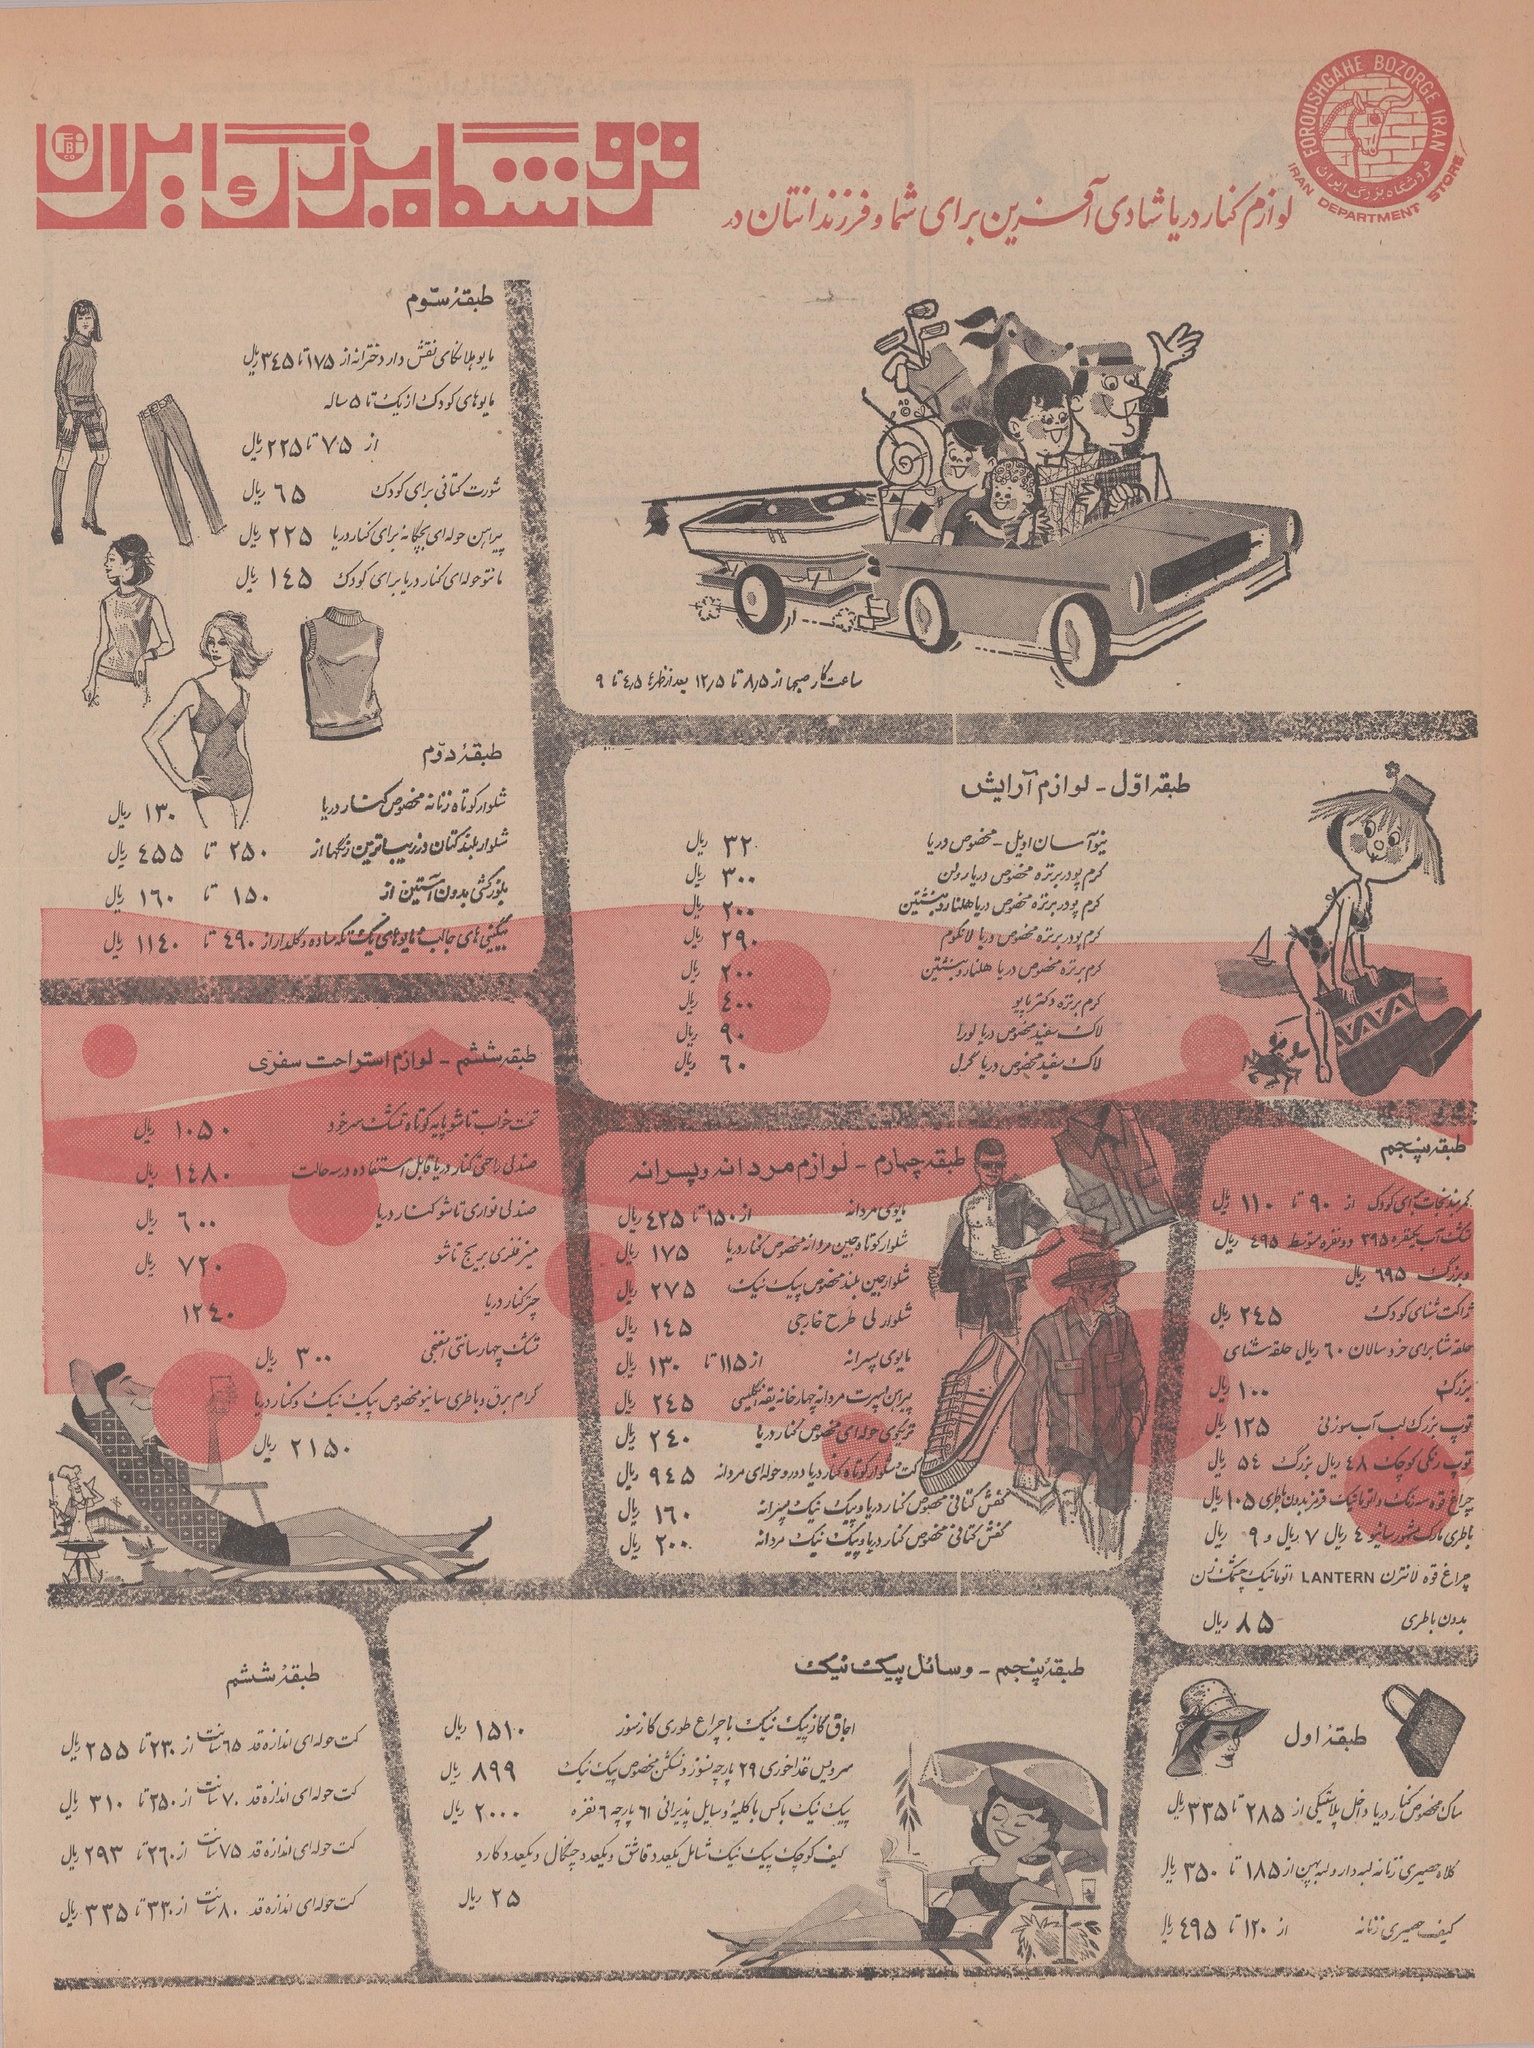 FOROUSHGAHE BOZORGE IRAN
فروشگاه بزرگ ایران
IRAN DEPARTMENT STORE
فروشگاه بزرگ ایران
لوازم کنار دریا شادی آفرین برای شما و فرزندانتان در
طبقهٔ سوّم
مایوهلانکای نقش دار دخترانه از ۱۷۵ تا ۳۴۵ ریال
مایوهای کودک از یک تا ۵ ساله
از ۷۵ تا ۲۲۵ ریال
شورت کتانی برای کودک ۶۵ ریال
پیراهن حوله‌ای بچگانه برای کنار دریا ۲۲۵ ریال
مانتو حوله‌ای کنار دریا برای کودک ۱۴۵ ریال
ساعت کار صبحها از ۸٫۵ تا ۱۲٫۵ بعدازظهر ۴٫۵ تا ۹
طبقهٔ دوّم
شلوار کوتاه زنانه مخصوص کنار دریا ۱۳۰ ریال
شلوار بلند کتان در زیباترین رنگها از ۲۵۰ تا ۴۵۵ ریال
بلوز کشی بدون آستین از ۱۵۰ تا ۱۶۰ ریال
بیکینی‌های جالب و مایوهای یک تکه ساده و گلدار از ۴۹۰ تا ۱۱۴۰ ریال
طبقه اوّل - لوازم آرایش
نیوآ سان اویل - مخصوص دریا ۳۲ ریال
کرم پودر برنزه مخصوص دریا رولن ۳۰۰ ریال
کرم پودر برنزه مخصوص دریا هلنا روبنشتین ۲۰۰ ریال
کرم پودر برنزه مخصوص دریا لانکوم ۲۹۰ ریال
کرم برنزه مخصوص دریا هلنا روبنشتین ۲۰۰ ریال
کرم برنزه دکتر پایو ۴۰۰ ریال
لاک سفید مخصوص دریا لورا ۹۰ ریال
لاک سفید مخصوص دریا گرل ۶۰ ریال
طبقه ششم - لوازم استراحت سفری
تخت خواب تاشو پایه کوتاه تشک سرخود ۱۰۵۰ ریال
صندلی راحتی کنار دریا قابل استفاده در سه حالت ۱۴۸۰ ریال
صندلی نواری تاشو کنار دریا ۶۰۰ ریال
میز فلزی بریج تاشو ۷۲۰ ریال
چتر کنار دریا ۱۲۴۰
تشک چهار سانتی اسفنجی ۳۰۰ ریال
گرام برق و باطری سانیو مخصوص پیک نیک و کنار دریا
۲۱۵۰ ریال
طبقه چهارم - لوازم مردانه و پسرانه
مایوی مردانه از ۱۵۰ تا ۴۲۵ ریال
شلوار کوتاه جین مردانه مخصوص کنار دریا ۱۷۵ ریال
شلوار جین بلند مخصوص پیک نیک ۲۷۵ ریال
شلوار لی طرح خارجی ۱۴۵ ریال
مایوی پسرانه از ۱۱۵ تا ۱۳۰ ریال
پیراهن اسپرت مردانه چهارخانه یقه انگلیسی ۲۴۵ ریال
تریکوی حوله‌ای مخصوص کنار دریا ۲۴۰ ریال
کت و شلوار کوتاه کنار دریا دو رو حوله‌ای مردانه ۹۴۵ ریال
کفش کتانی مخصوص کنار دریا و پیک نیک پسرانه ۱۶۰ ریال
کفش کتانی مخصوص کنار دریا و پیک نیک مردانه ۲۰۰ ریال
طبقه پنجم
کمربند نجات برای کودک از ۹۰ تا ۱۱۰ ریال
تشک آب یکنفره ۳۹۵ دو نفره متوسط ۴۹۵ ریال
و بزرگ ۶۹۵ ریال
ژاکت شنای کودک ۲۴۵ ریال
حلقه شنا برای خردسالان ۶۰ ریال حلقه شنای
بزرگ ۱۰۰ ریال
توپ بزرگ لب آب سوزنی ۱۲۵ ریال
توپ رنگی کوچک ۴۸ ریال بزرگ ۵۴ ریال
چراغ قوه سه رنگ و اتوماتیک قرمز بدون باطری ۱۰۵ ریال
باطری مارک مشهور سانیو ۴ ریال ۷ ریال و ۹ ریال
چراغ قوه لانترن LANTERN اتوماتیک چشمک زن
بدون باطری ۸۵ ریال
طبقهٔ ششم
کت حوله‌ای اندازه قد ۶۵ سانت از ۲۳۰ تا ۲۵۵ ریال
کت حوله‌ای اندازه قد ۷۰ سانت از ۲۵۰ تا ۳۱۰ ریال
کت حوله‌ای اندازه قد ۷۵ سانت از ۲۶۰ تا ۲۹۳ ریال
کت حوله‌ای اندازه قد ۸۰ سانت از ۳۳۰ تا ۳۳۵ ریال
طبقهٔ پنجم - وسائل پیک نیک
اجاق گاز پیک نیک با چراغ طوری گازسوز ۱۵۱۰ ریال
سرویس غذاخوری ۲۹ پارچه نسوز و نشکن مخصوص پیک نیک ۸۹۹ ریال
پیک نیک باکس با کلیهٔ وسایل پذیرائی ۶۱ پارچه ۶ نفره ۲۰۰۰ ریال
کیف کوچک پیک نیک شامل یکعدد قاشق و یکعدد چنگال و یکعدد کارد
۲۵ ریال
طبقهٔ اول
ساک مخصوص کنار دریا داخل پلاستیکی از ۲۸۵ تا ۳۳۵ ریال
کلاه حصیری زنانه لبه دار و لبه پهن از ۱۸۵ تا ۳۵۰ ریال
کیف حصیری زنانه از ۱۲۰ تا ۴۹۵ ریال